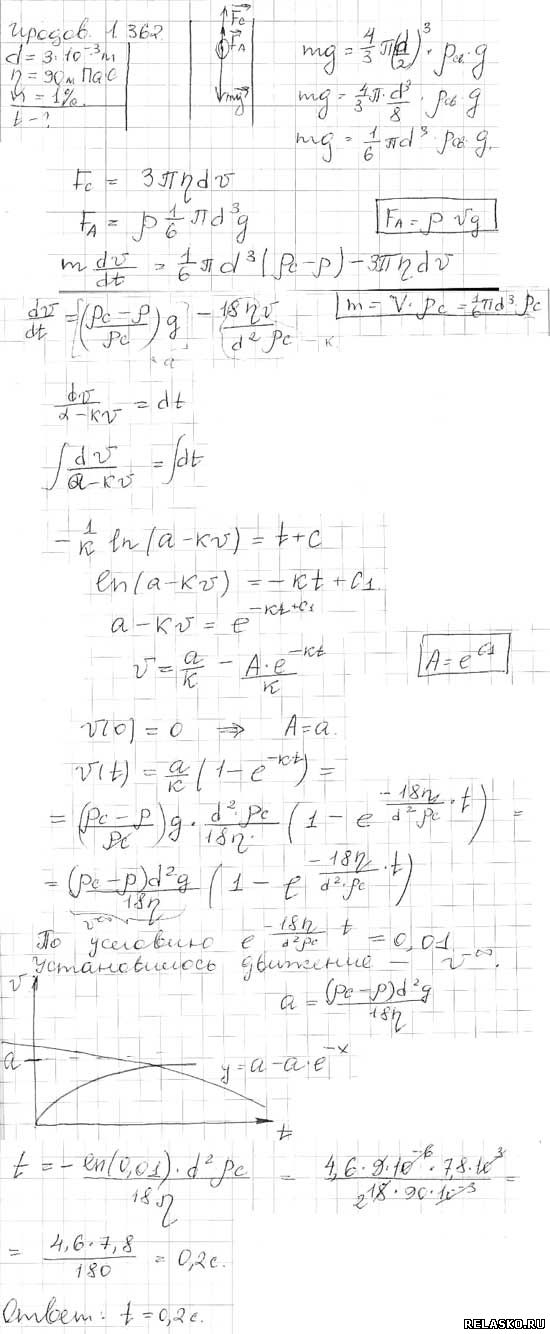 Иродов. 1.362
d = 3·10⁻³м
η = 90м Па·с
n = 1%.
t - ?
F⃗c
F⃗A
mg⃗
mg = 4/3 π(d/2)³ · ρсв · g
mg = 4/3 π · d³/8 · ρсв · g
mg = 1/6 πd³ · ρсв · g.
Fc = 3πηdv
FA = ρ 1/6 πd³g
FA = ρVg
m dv/dt = 1/6 πd³(ρc-ρ) - 3πηdv
dv/dt = ((ρc-ρ)/ρc)g - 18ηv/(d²ρc)
m = V·ρc = 1/6 πd³·ρc
a
- к
dv/(a-кv) = dt
∫ dv/(a-кv) = ∫dt
-1/к ln(a-кv) = t+c
ln(a-кv) = -кt+c₁.
a-кv = e^(-кt+c₁)
v = a/к - A·e^(-кt)/к
A = e^(c₁)
v(0) = 0 ⇒ A = a.
v(t) = a/к (1-e^(-кt)) =
= ((ρc-ρ)/ρc)g · d²·ρc/18η · (1 - e^(-18η/(d²ρc)·t)) =
= (ρc-ρ)d²g/18η (1 - e^(-18η/(d²·ρc)·t))
v^∞
По условию e^(-18η/(d²ρc) t) = 0,01
Установилось движение - v^∞.
v
a = (ρc-ρ)d²g/18η
a
y = a-a·e^(-x)
t
t = -ln(0,01)·d²ρc/18η = 4,6·9·10⁻⁶·7,8·10³/(₂18·90·10⁻³) =
= 4,6·7,8/180 = 0,2с.
Ответ: t = 0,2с.
RELASKO.RU